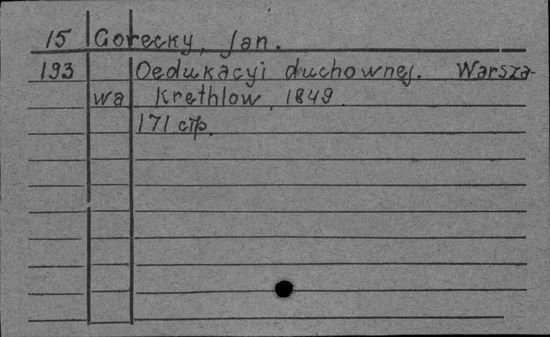 15 Gorecky, Jan.
193 Oedukacyi duchownej. Warsza-
wa Krethlow, 1849.
171 стр.